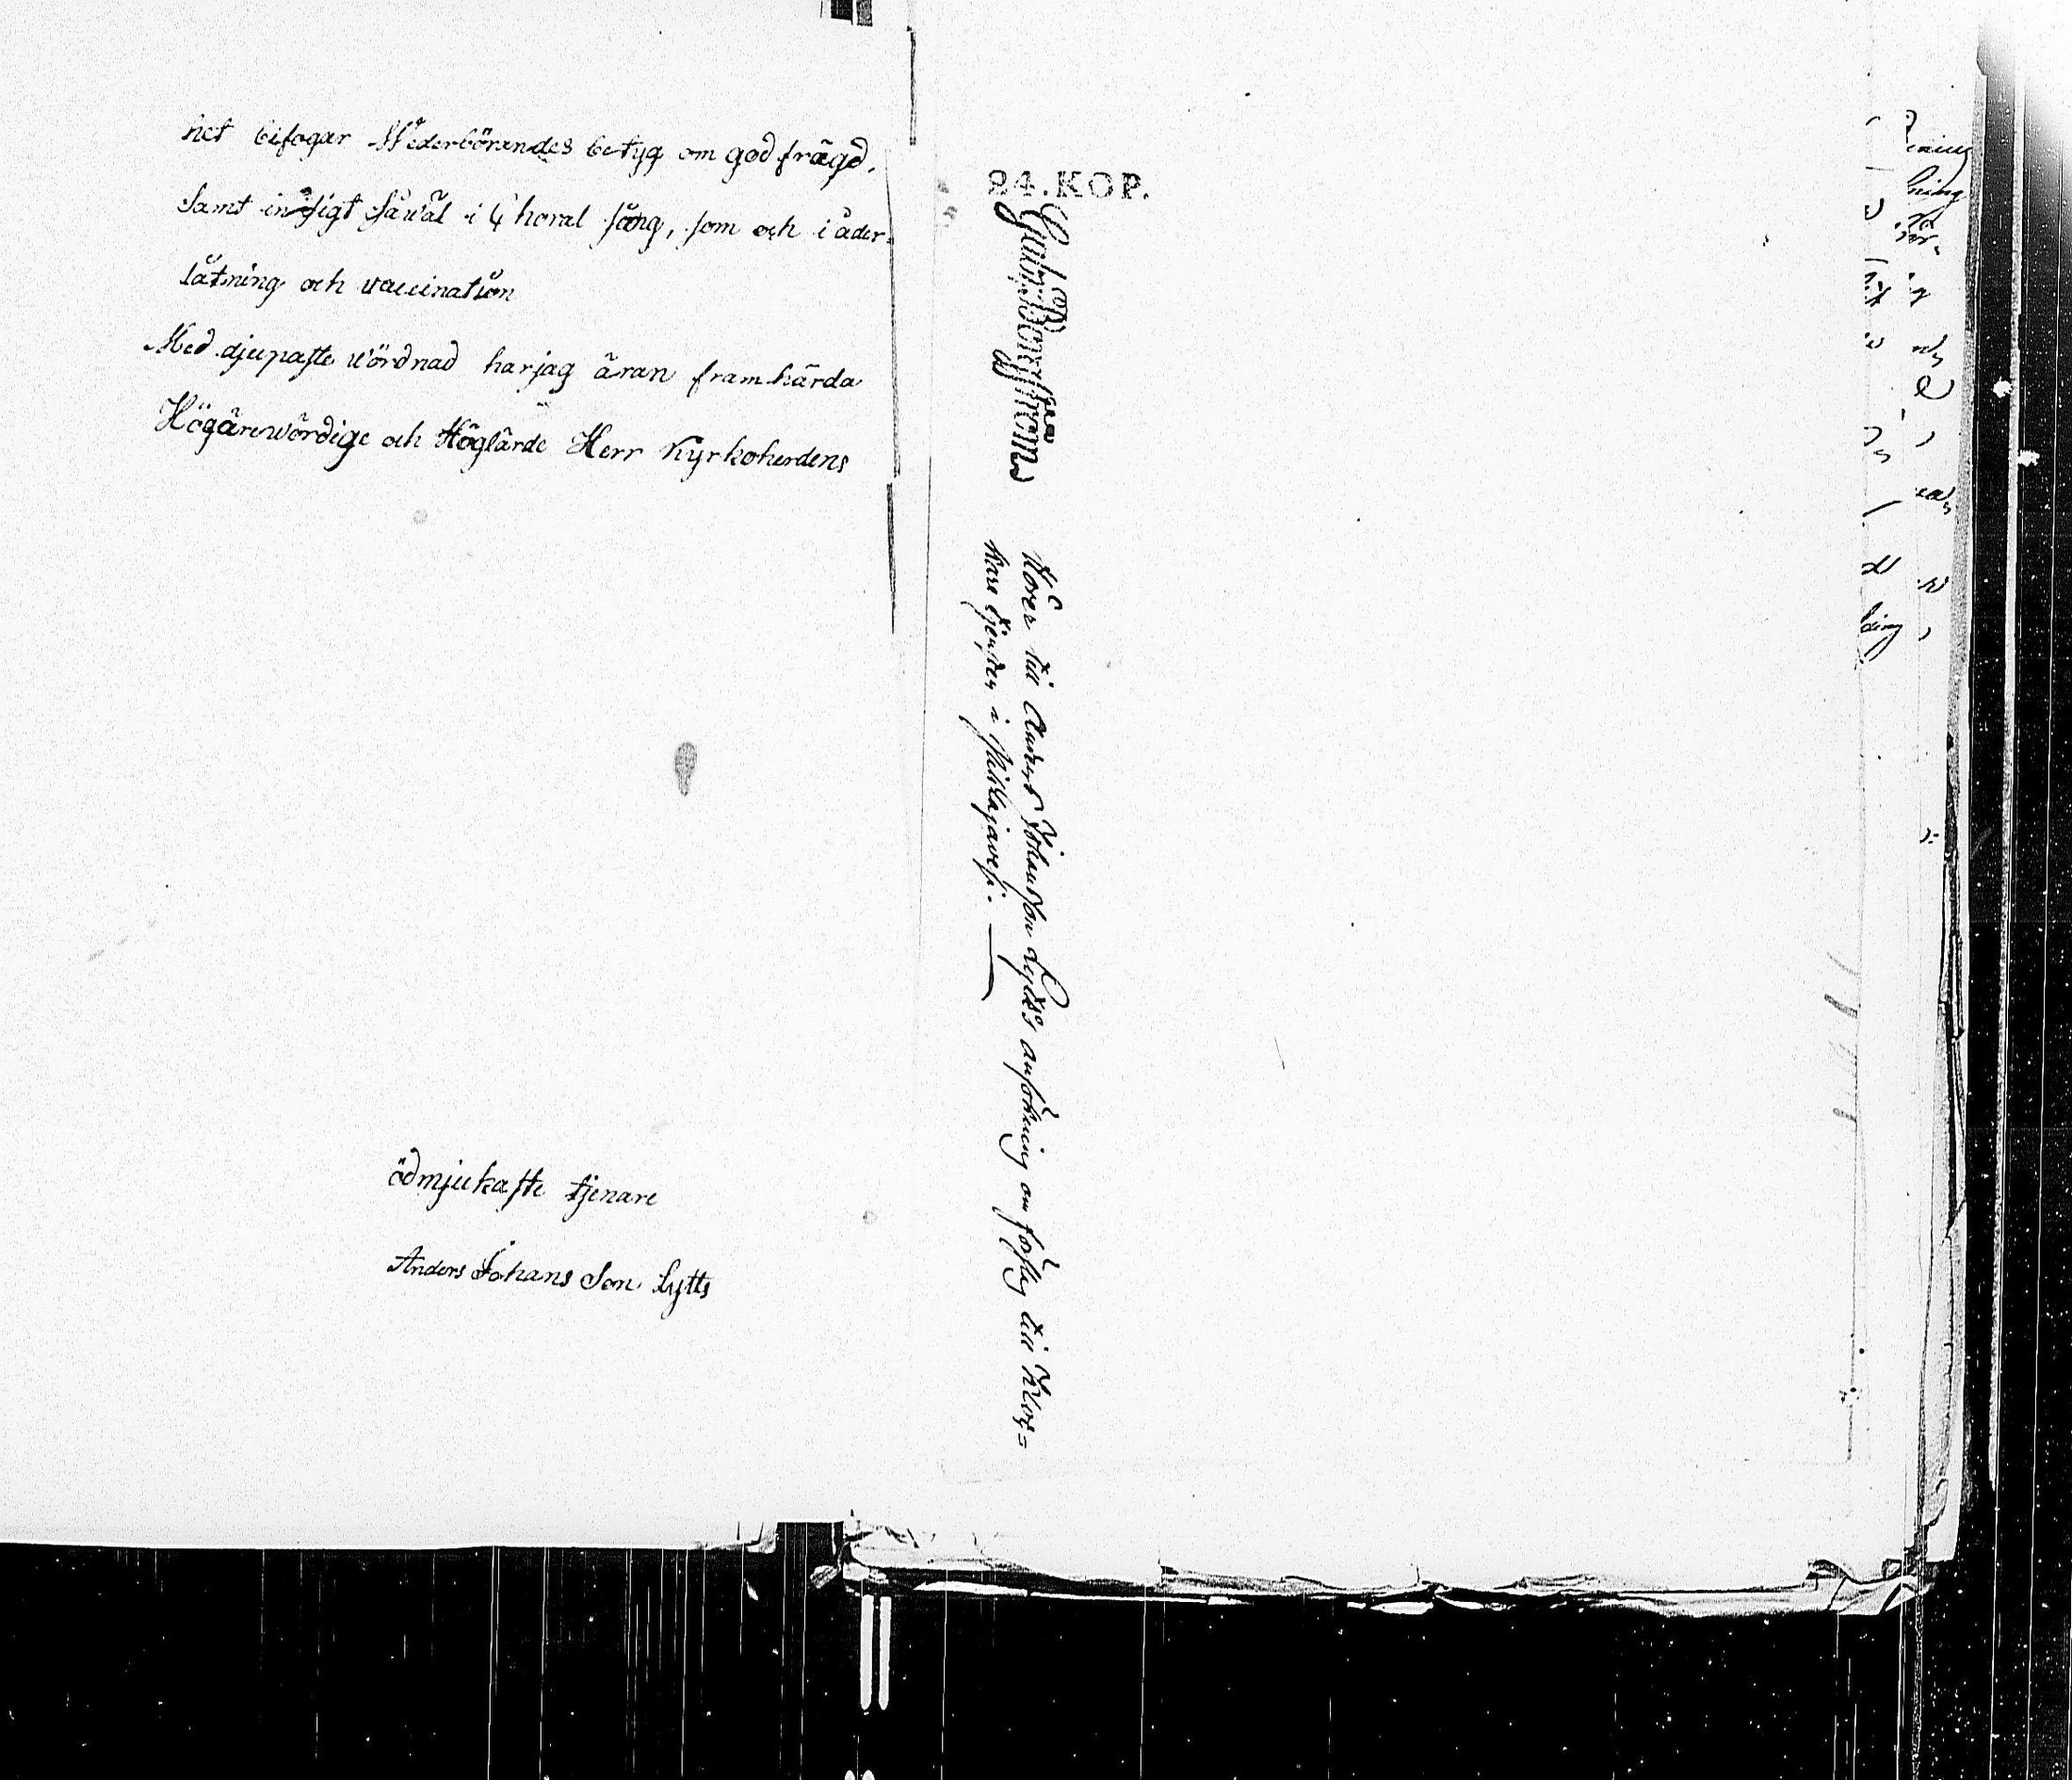 het bifogar Wederbörandes betyg om god frägd,
Samt insigt såwäl i Choral sång, som och i åder-
låtning och vaccination
Med djupaste wördnad har jag äran framhärda
Högärewördige och Höglärde Herr Kyrkoherdens
ödmjukaste tjenare
Anders Johans Son Lytts
24. KOP.
Hörer till Anders Johansson Lytts ansökning om förslag till Kloc=
kare tjensten i Pihlajavesi.